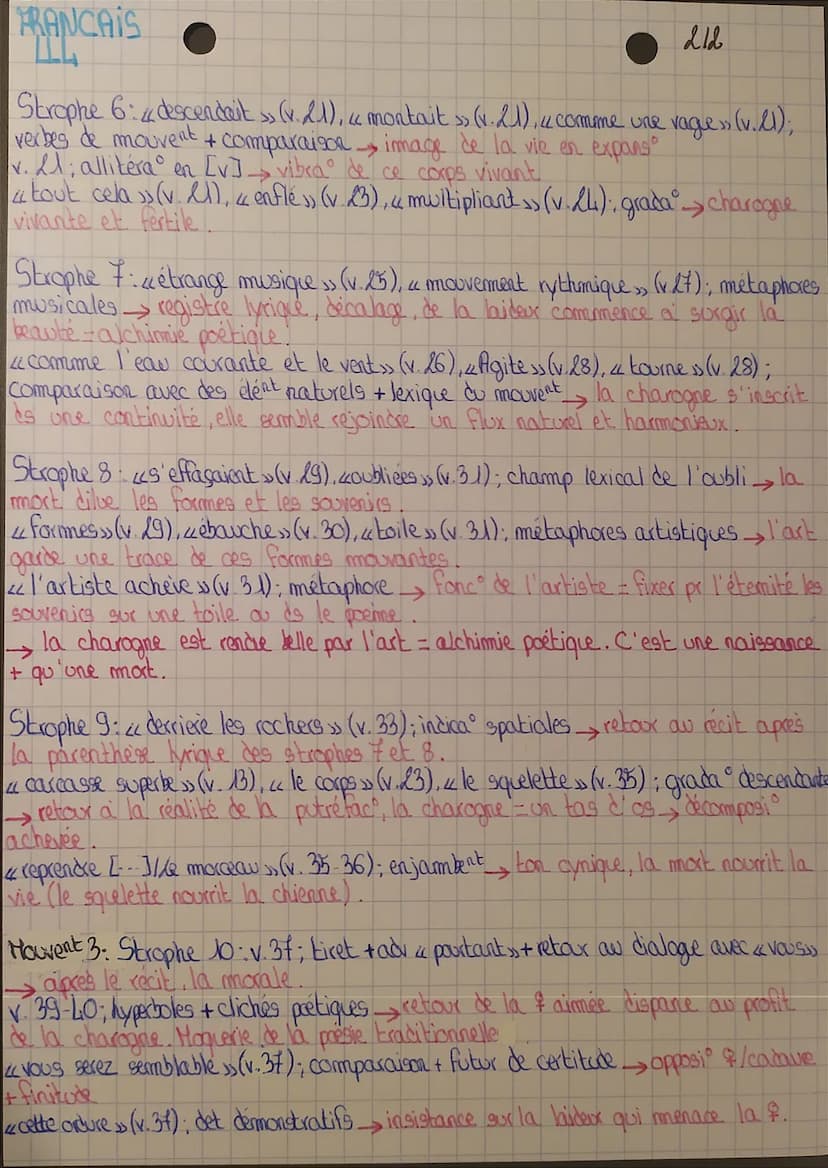 FRANCAIS
LL4
2/2
Strophe 6 : « descendait » (v. 21), « montait » (v. 21), « comme une vage » (v. 21) ;
verbes de mouvent + comparaison → image de la vie en expans°
v. 21 ; allitéra° en [v] → vibra° de ce corps vivant
« tout cela » (v. 21), « enflé » (v. 23), « multipliant » (v. 24) ; grada° → charogne
vivante et fertile.
Strophe 7 : « étrange musique » (v. 25), « mouvement rythmique » (v 27) ; métaphores
musicales → registre lyrique, décalage, de la laideur commence à surgir la
beauté = alchimie poétique.
« comme l'eau courante et le vent » (v. 26), « Agite » (v. 28), « tourne » (v. 28) ;
comparaison avec des élént naturels + lexique du mouvent → la charogne s'inscrit
ds une continuité, elle semble rejoindre un flux naturel et harmonieux.
Strophe 8 : « s'effaçaient » (v. 29), « oubliées » (v. 31) ; champ lexical de l'oubli → la
mort dilue les formes et les souvenirs.
« formes » (v. 29), « ébauche » (v. 30), « toile » (v. 31) ; métaphores artistiques → l'art
garde une trace de ces formes mouvantes.
« l'artiste achève » (v. 31) ; métaphore → fonc° de l'artiste = fixer pr l'éternité les
souvenirs sur une toile ou ds le poème.
→ la charogne est rendue belle par l'art = alchimie poétique. C'est une naissance
+ qu'une mort.
Strophe 9 : « derriere les rochers » (v. 33) ; indica° spatiales → retour au récit après
la parenthèse lyrique des strophes 7 et 8.
« carcasse superbe » (v. 13), « le corps » (v. 23), « le squelette » (v. 35) ; grada° descendante
→ retour à la réalité de la putréfac°, la charogne = un tas d'os → décomposi°
achevée.
« reprendre [...] / Le morceau » (v. 35-36) ; enjambent → ton cynique, la mort nourrit la
vie (le squelette nourrit la chienne).
Mouvent 3 : Strophe 10 : v. 37 ; tiret + adv « pourtant » + retour au dialoge avec « vous »
→ après le récit, la morale.
v. 39-40 ; hyperboles + clichés poétiques → retour de la ♀ aimée dispane au profit
de la charogne. Moquerie de la poésie traditionnelle
« vous serez semblable » (v. 37) ; comparaison + futur de certitude → opposi° ♀/cadavre
+ finitude
« cette ordure » (v. 37) ; det démonstratifs → insistance sur la laideur qui menace la ♀.